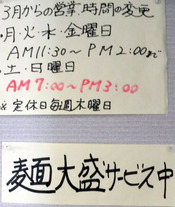 3月からの営業時間の変更
・月・火・木・金曜日
AM11:30～PM2:00まで
・土・日曜日
AM7:00～PM3:00
※定休日毎週水曜日
麦面大盛サービス中